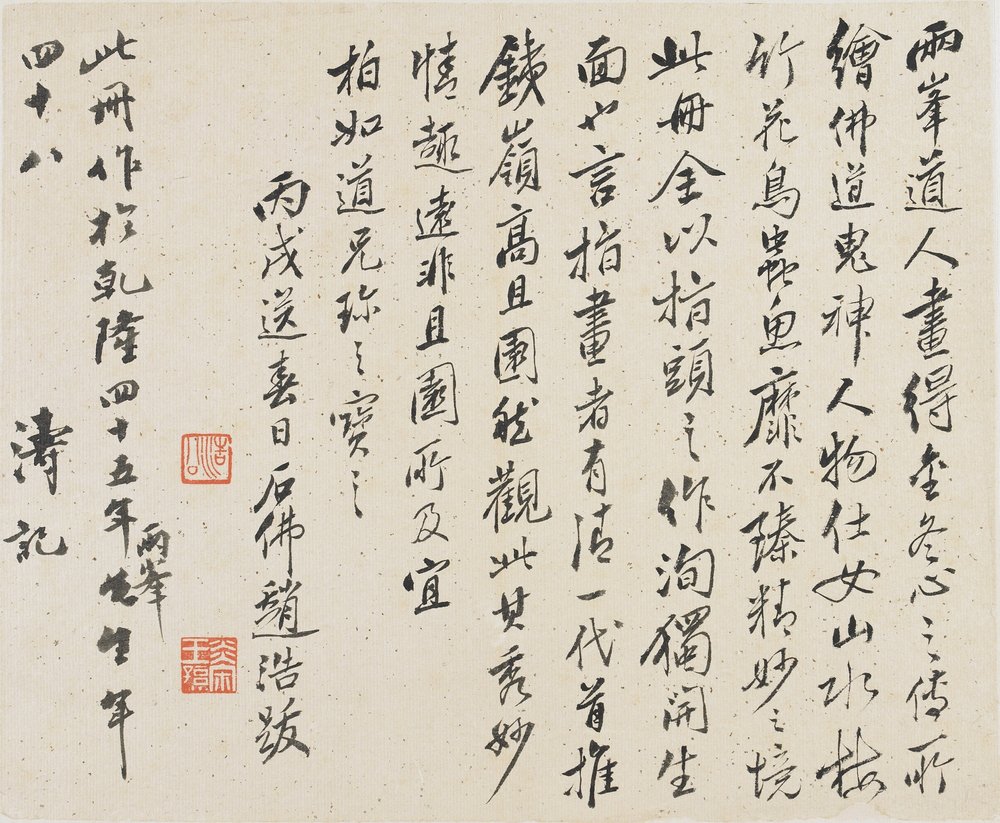 兩峯道人畫得金冬心之傳所
繪佛道鬼神人物仕女山水梅
竹花鳥蟲魚靡不臻精妙之境
此冊全以指頭之作洵獨開生
面也言指畫者有清一代首推
鐵嶺高且園然觀此其秀妙
情趣遠非且園所及宜
柏如道兄珎之寶之
丙戌送春日石佛趙浩跋
浩公
炎宋王孫
此冊作於乾隆四十五年兩峯先生年
四十八
濤記